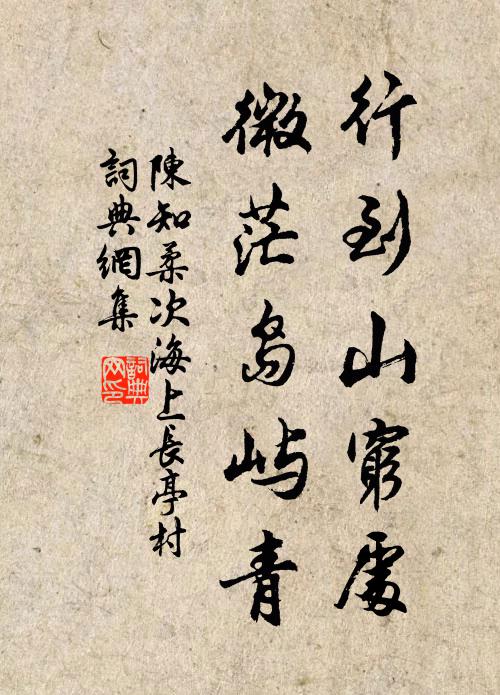 行到山窮處
微茫島屿青
陳知柔次海上長亭村
詞典網集
詞典
网印